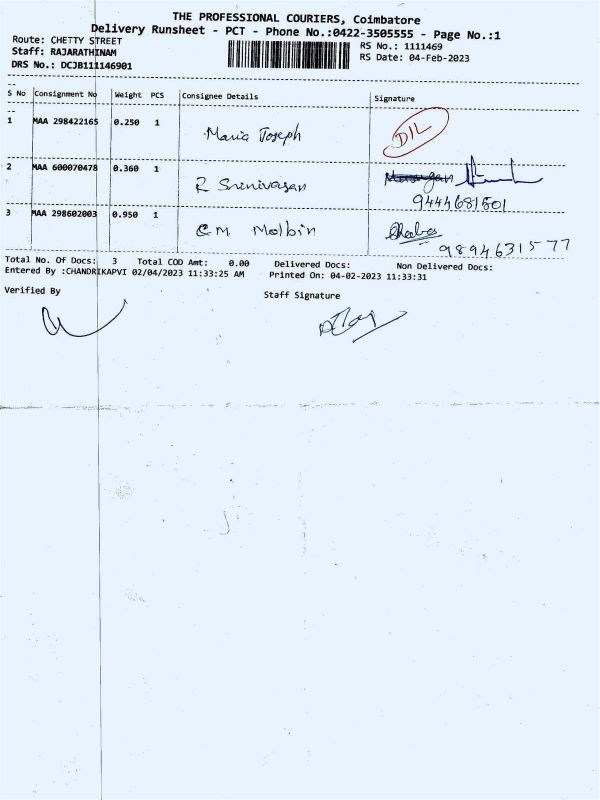 THE PROFESSIONAL COURIERS, Coimbatore
Delivery Runsheet - PCT - Phone No.:0422-3505555 - Page No.:1
Route: CHETTY STREET
RS No.: 1111469
Staff: RAJARATHINAM
RS Date: 04-Feb-2023
DRS No.: DCJB111146901
S No Consignment No Weight PCS Consignee Details Signature
1 MAA 298422165 0.250 1 Maria Joseph D/L
2 MAA 600070478 0.360 1 R Srinivasan
9444681801
3 MAA 298602003 0.950 1 C M Molbin
9894631577
Total No. Of Docs: 3 Total COD Amt: 0.00 Delivered Docs: Non Delivered Docs:
Entered By :CHANDRIKAPVI 02/04/2023 11:33:25 AM Printed On: 04-02-2023 11:33:31
Verified By
Staff Signature